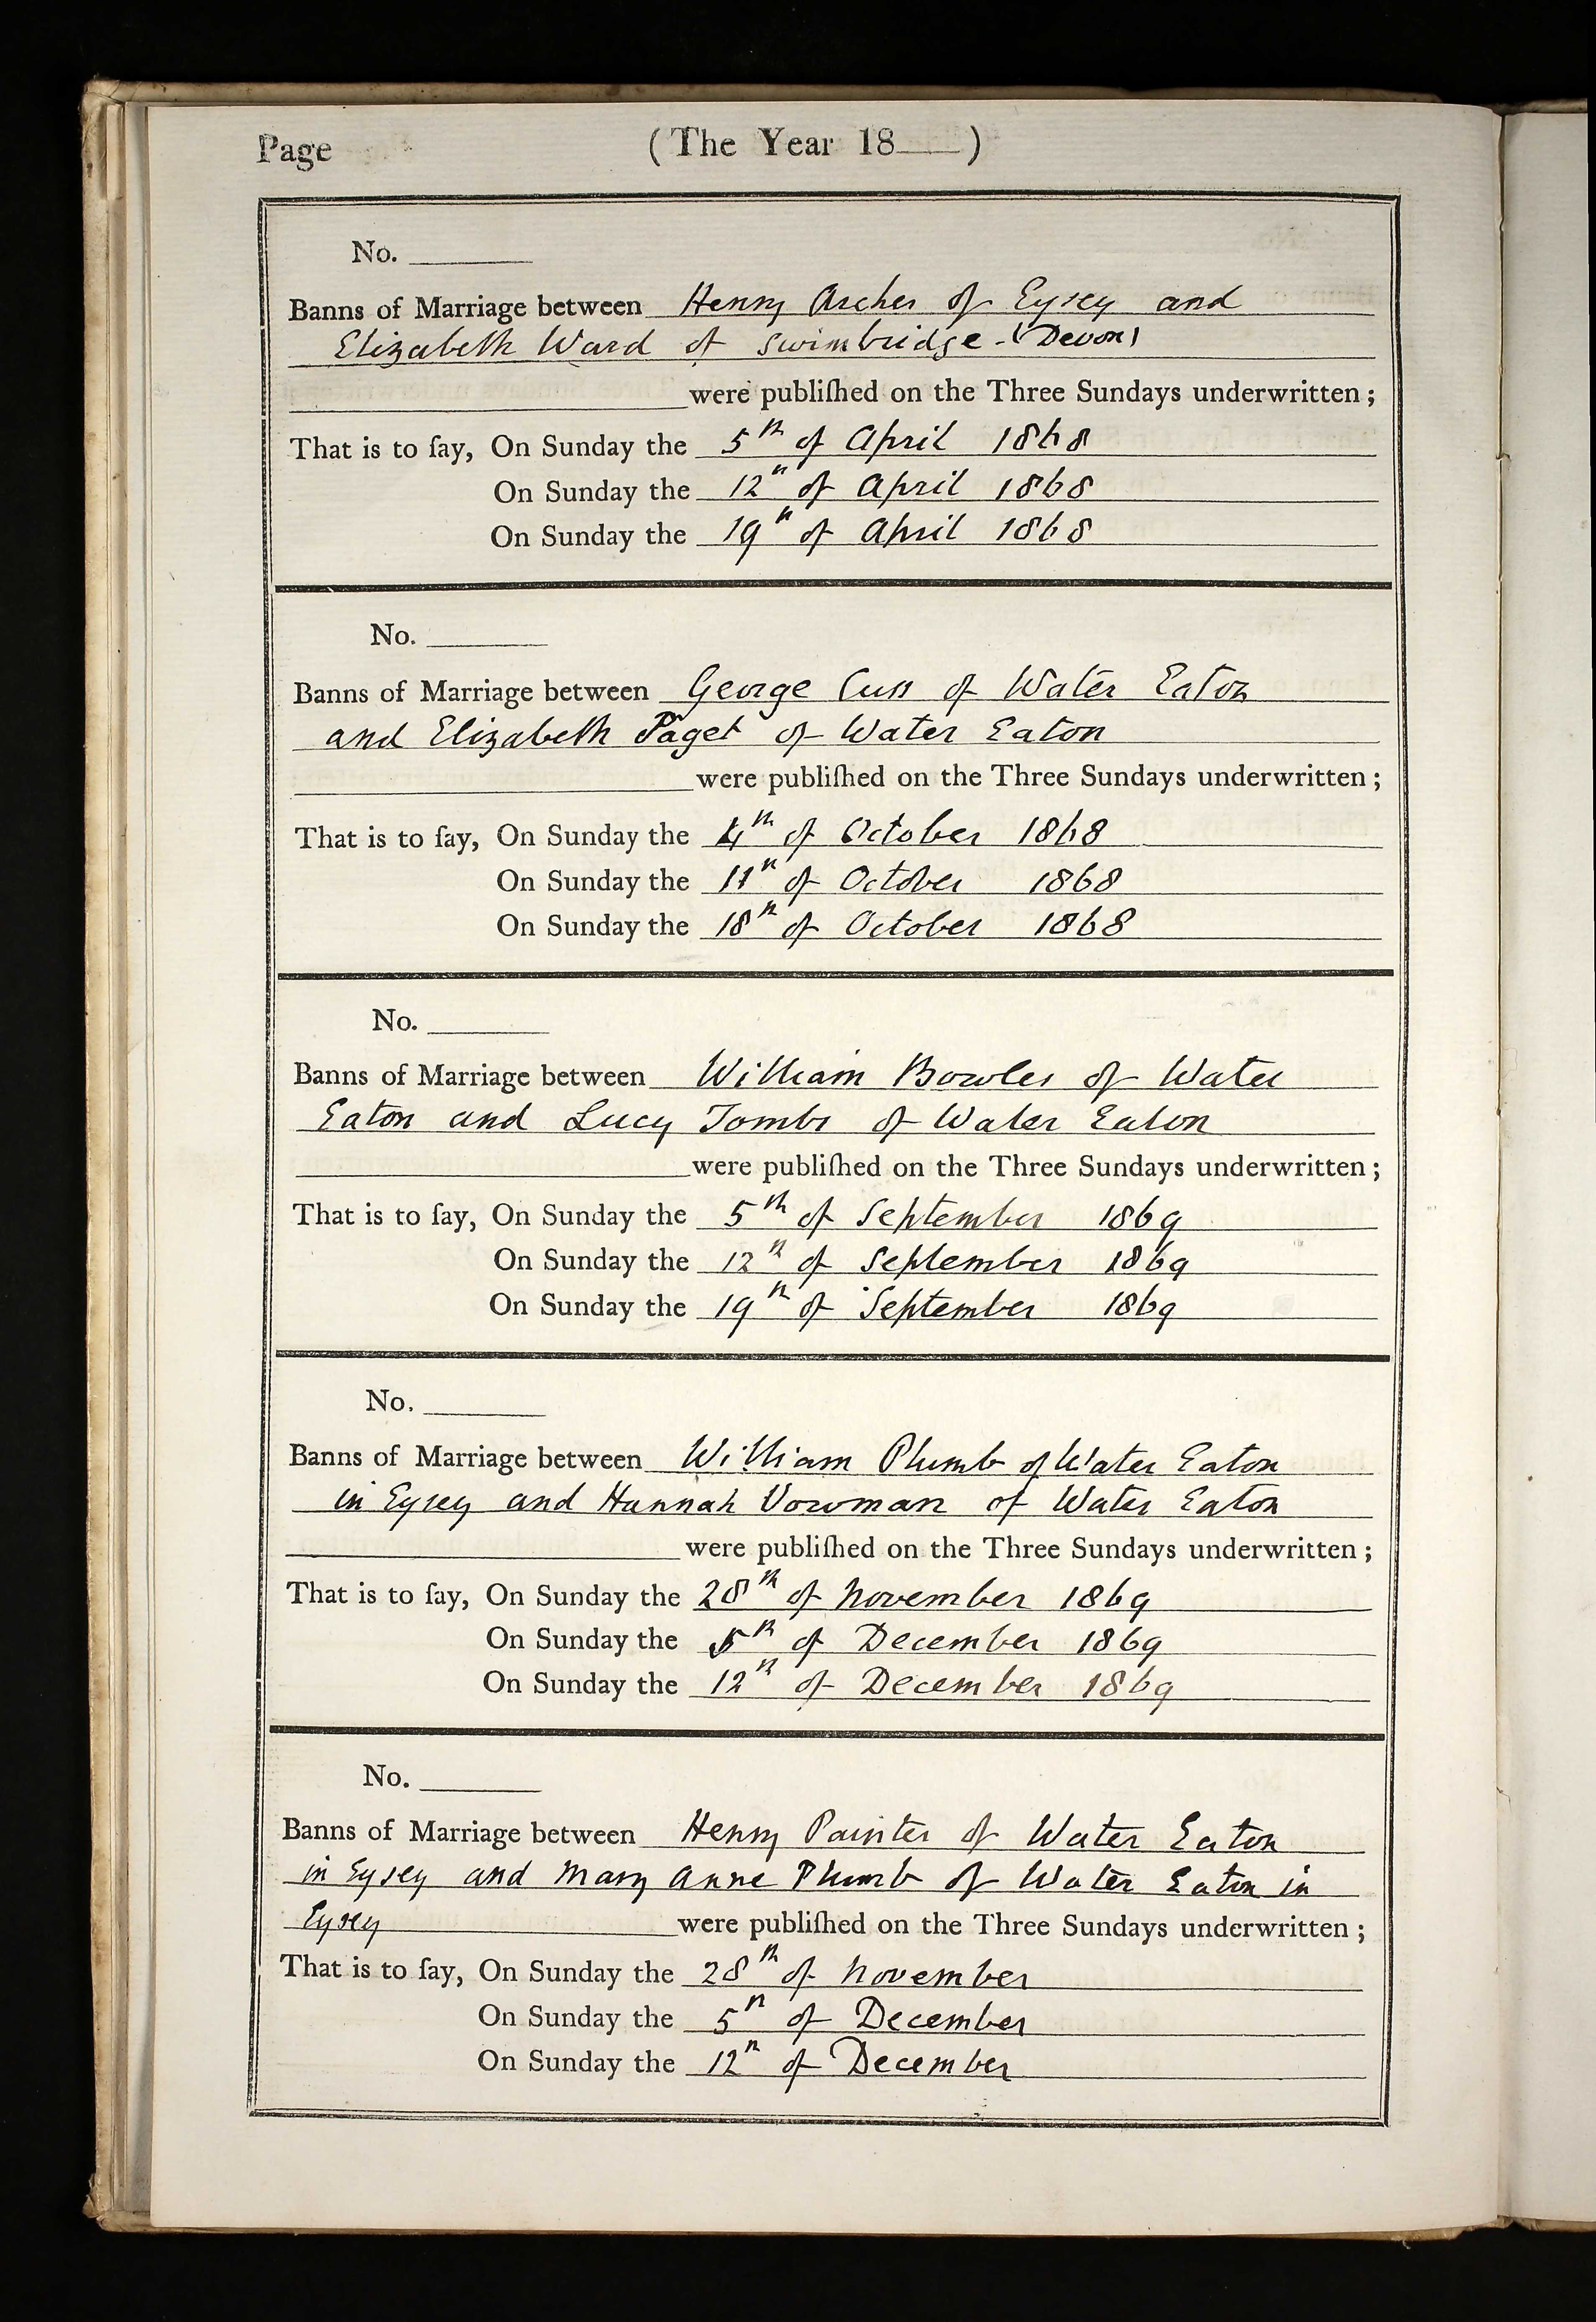 Page (The Year 18 )
No.
Banns of Marriage between Henry Archer of Eysey and
Elizabeth Ward of Swimbridge - (Devon)
were publiſhed on the Three Sundays underwritten;
That is to ſay, On Sunday the 5th of April 1868
On Sunday the 12th of April 1868
On Sunday the 19th of April 1868
No.
Banns of Marriage between George Cuss of Water Eaton
and Elizabeth Paget of Water Eaton
were publiſhed on the Three Sundays underwritten;
That is to ſay, On Sunday the 4th of October 1868
On Sunday the 11th of October 1868
On Sunday the 18th of October 1868
No.
Banns of Marriage between William Bowles of Water
Eaton and Lucy Tombs of Water Eaton
were publiſhed on the Three Sundays underwritten;
That is to ſay, On Sunday the 5th of September 1869
On Sunday the 12th of September 1869
On Sunday the 19th of September 1869
No.
Banns of Marriage between William Plumb of Water Eaton
in Eysey and Hannah Vowman of Water Eaton
were publiſhed on the Three Sundays underwritten;
That is to ſay, On Sunday the 28th of November 1869
On Sunday the 5th of December 1869
On Sunday the 12th of December 1869
No.
Banns of Marriage between Henry Painter of Water Eaton
in Eysey and Mary Anne Plumb of Water Eaton in
Eysey were publiſhed on the Three Sundays underwritten;
That is to ſay, On Sunday the 28th of November
On Sunday the 5th of December
On Sunday the 12th of December